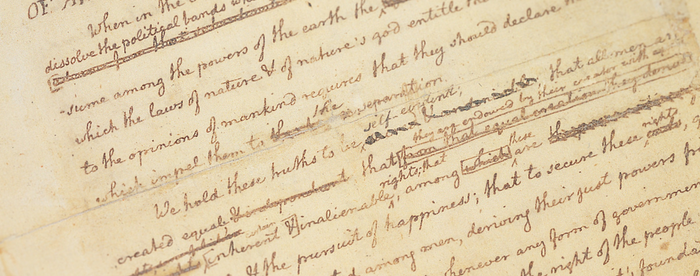 When in the
dissolve the political bands wh
-sume among the powers of the earth the
which the laws of nature & of nature's god entitle th
to the opinions of mankind requires that they should declare th
which impel them to the separation.
We hold these truths to be self-evident; that all men are
they are endowed by their creator with
created equal & independant; that from that equal creation they derive
rights; that these rights
inherent & inalienable, among which are
& the pursuit of happiness; that to secure these ends, g
among men, deriving their just powers fr
whenever any form of governme
the right of the people